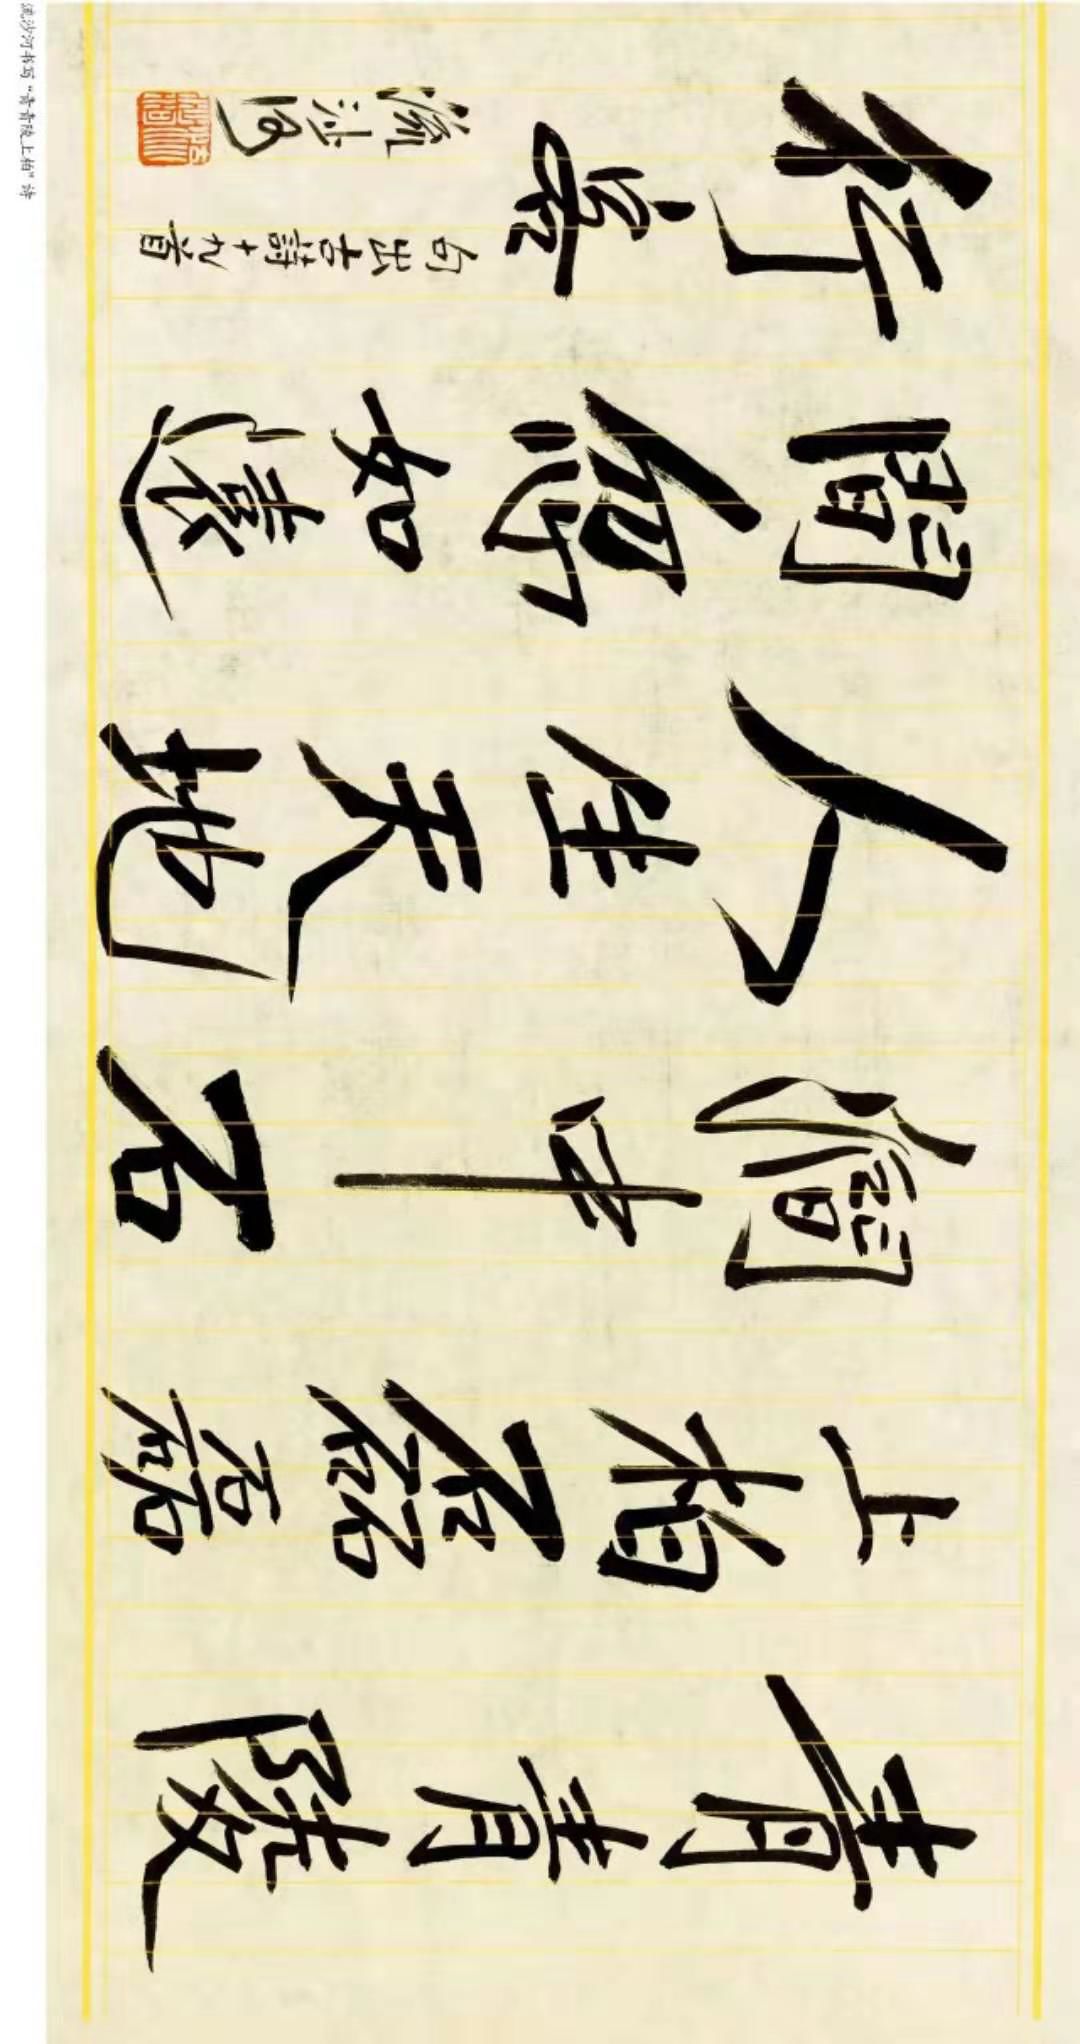 青青陵
上柏磊磊
澗中石
人生天地
間忽如遠
行客
句出古詩十九首
流沙河
流沙河书写“青青陵上柏”诗